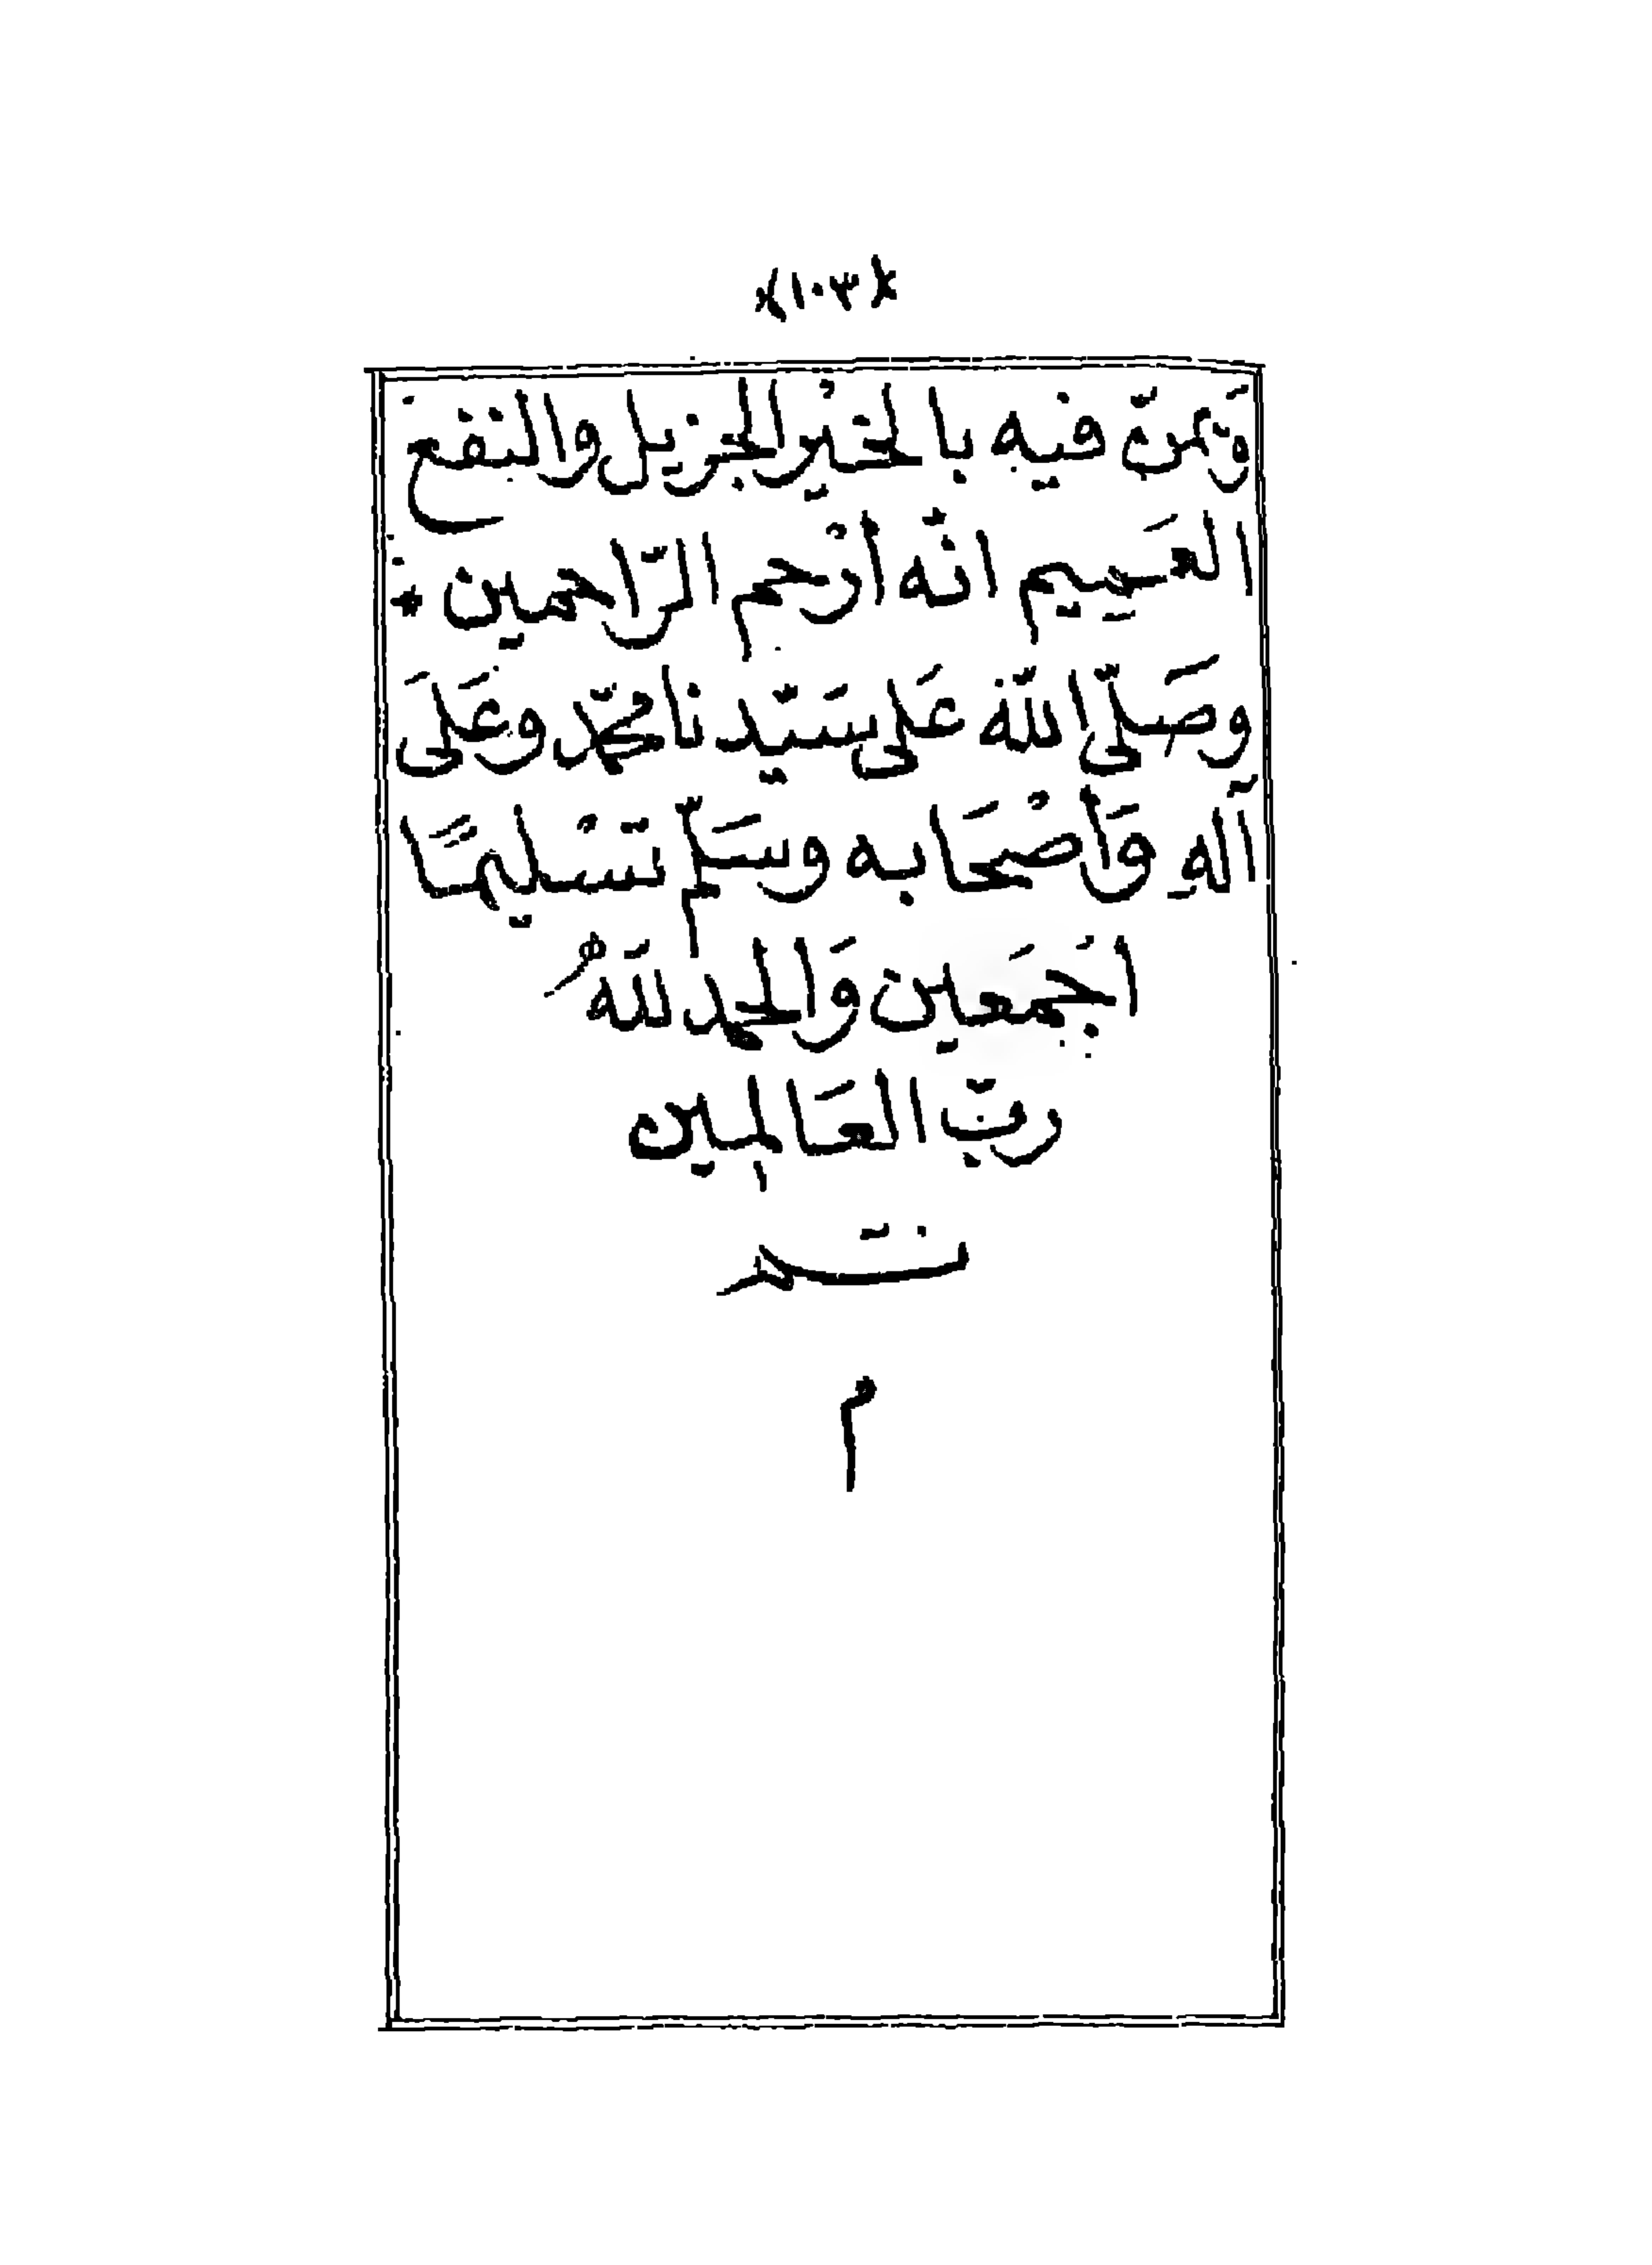 ﴿١٠٣﴾
وَيمنّ فيه بالخيْر الجزيل والنفع
العَمِيم انّه أرْحم الرّاحمين *
وصَلّى اللّه عَلى سَيّدنا محمّد وعَلىَ
آلهِ وَأصْحَابه وسَلّم تسْليمًا
اجَمَعين وَالحمد للّهُ
ربّ العَالمِين
تمت
م